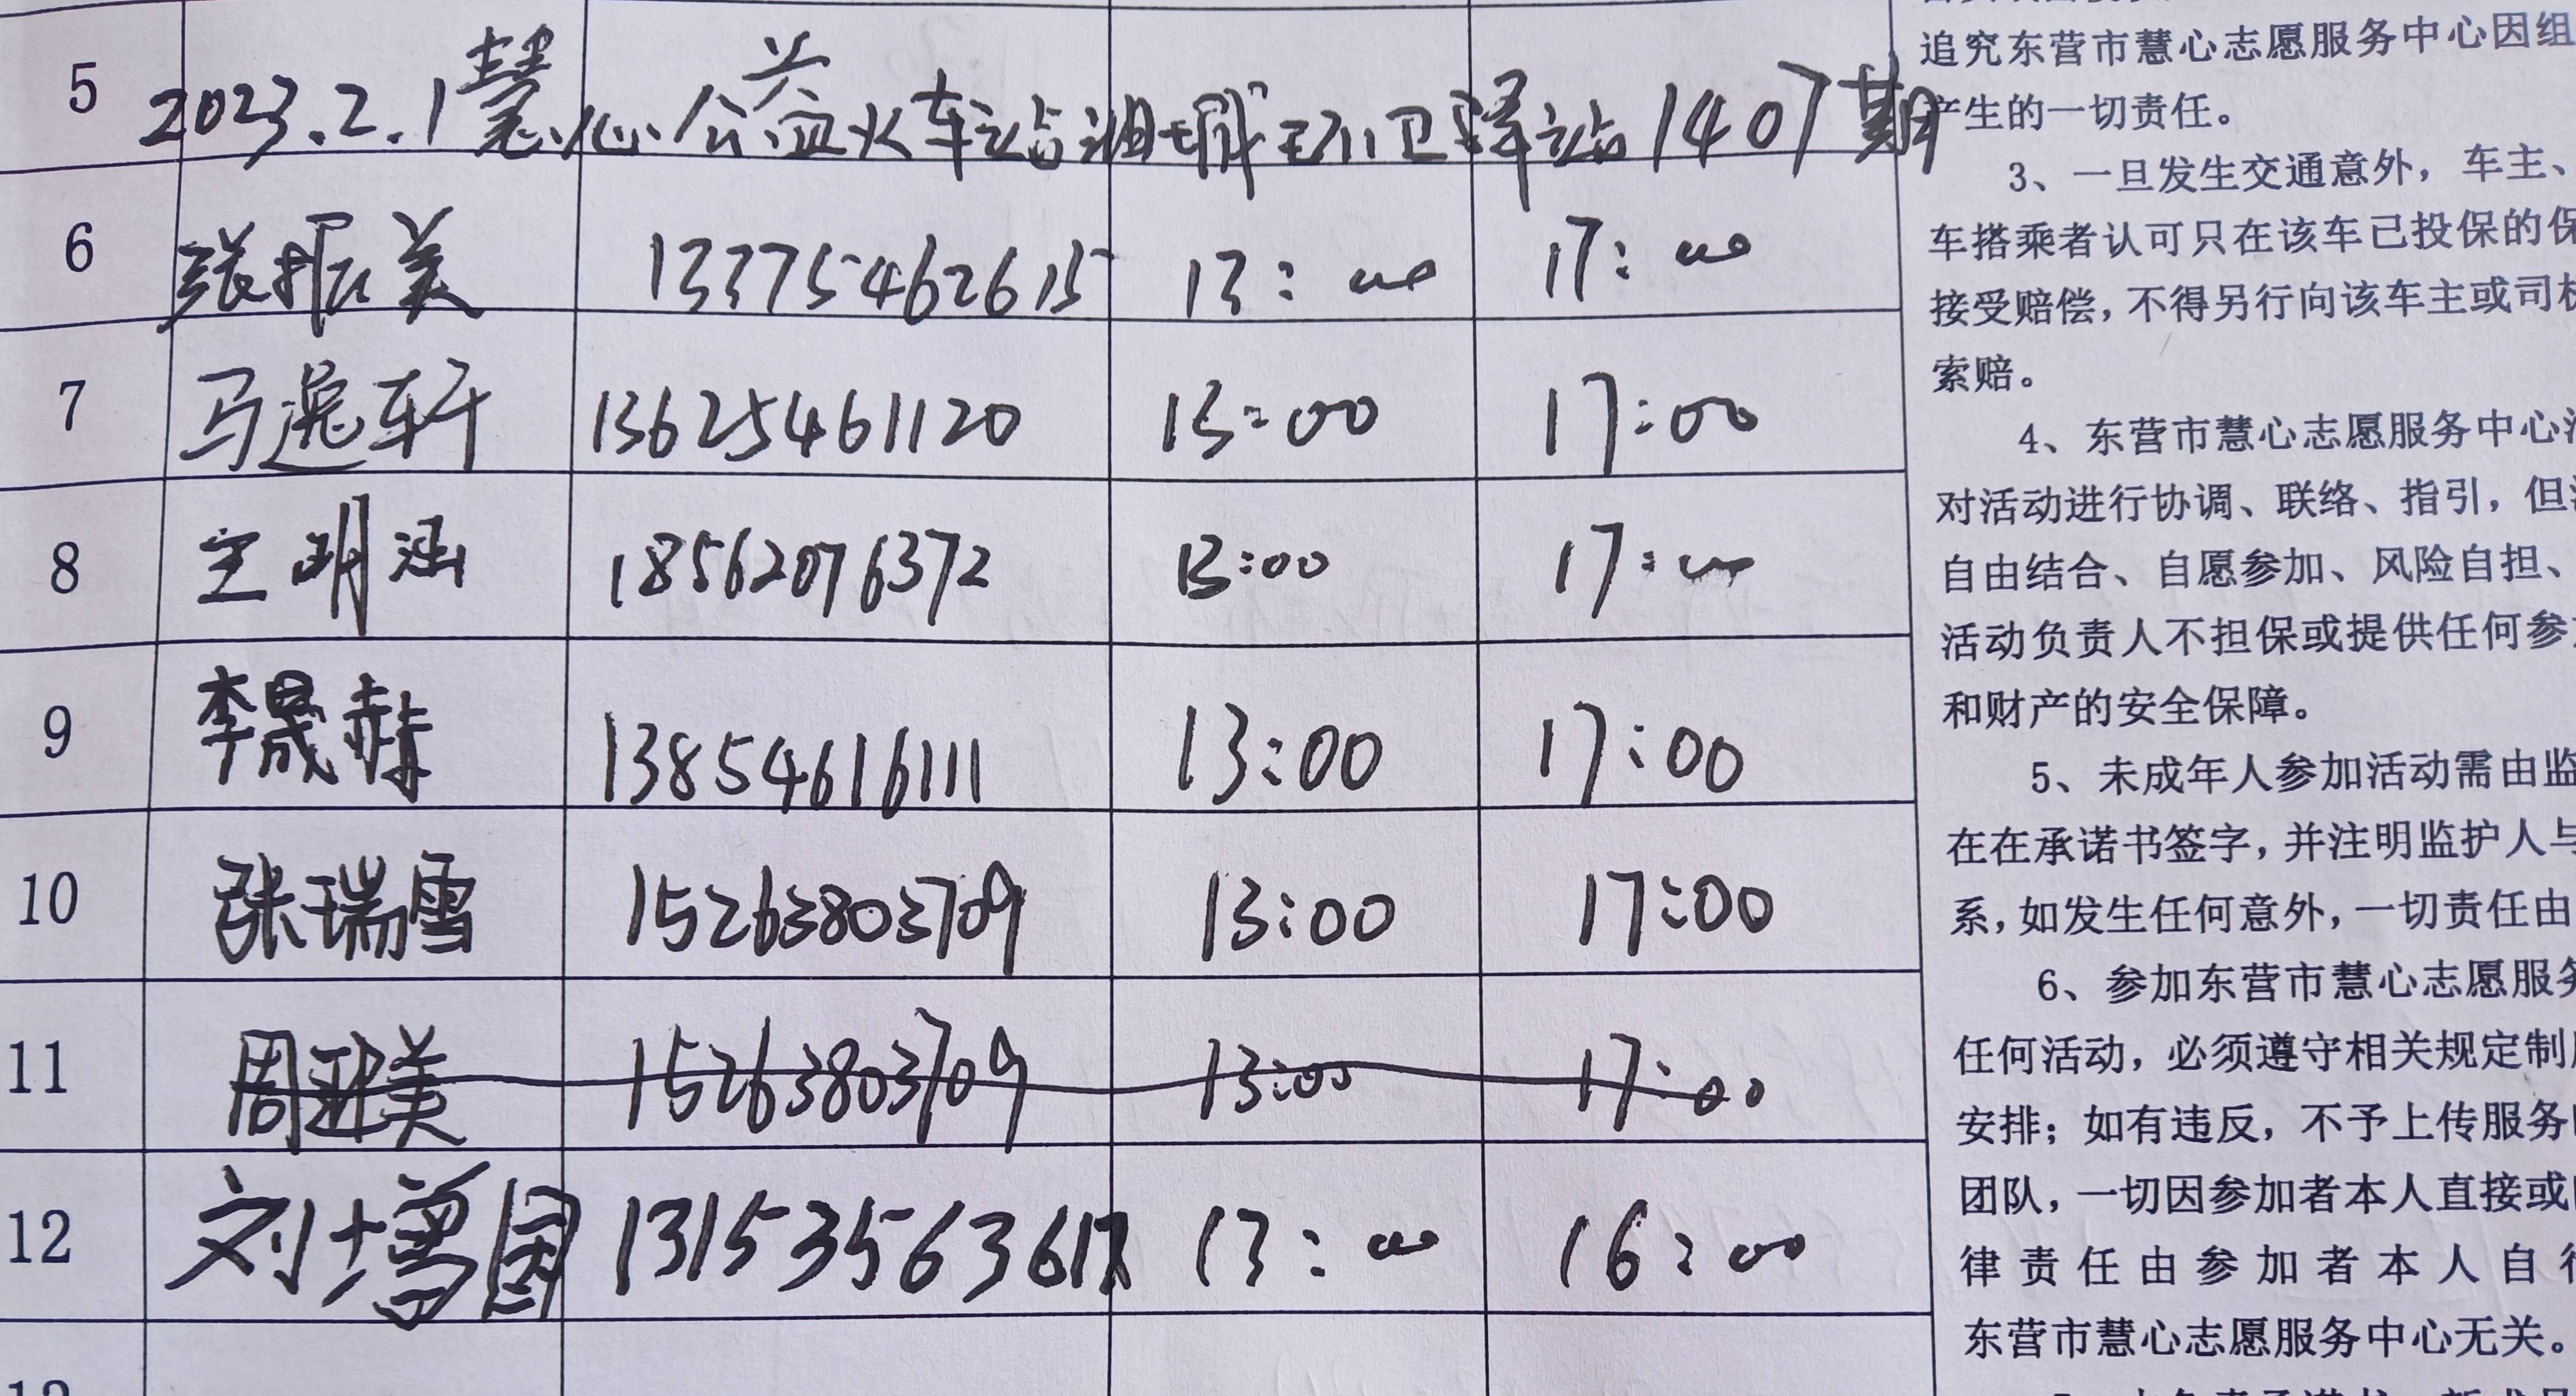 5 2023.2.1慧心公益火车站油城环卫驿站1407期
6 张振美 13375462615 13:00 17:00
7 马逸轩 13625461120 13:00 17:00
8 王明涵 18562076372 13:00 17:00
9 李晟赫 13854616111 13:00 17:00
10 张瑞雪 15263803709 13:00 17:00
11 周美 15263803709 13:00 17:00
12 刘增国 13:00 16:00
追究东营市慧心志愿服务中心因组
产生的一切责任。
3、一旦发生交通意外，车主、
车搭乘者认可只在该车已投保的保
接受赔偿，不得另行向该车主或司机
索赔。
4、东营市慧心志愿服务中心活
对活动进行协调、联络、指引，但
自由结合、自愿参加、风险自担、
活动负责人不担保或提供任何参
和财产的安全保障。
5、未成年人参加活动需由监
在在承诺书签字，并注明监护人与
系，如发生任何意外，一切责任由
6、参加东营市慧心志愿服务
任何活动，必须遵守相关规定制
安排；如有违反，不予上传服务
团队，一切因参加者本人直接或
律责任由参加者本人自行
东营市慧心志愿服务中心无关。